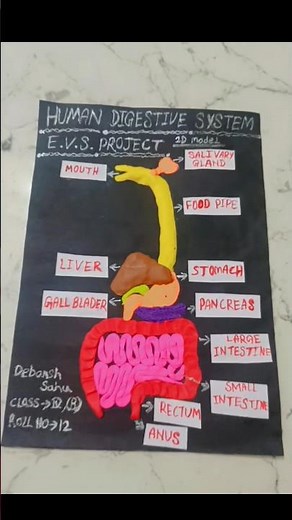 HUMAN DIGESTIVE SYSTEM
E.V.S. PROJECT 2D model
MOUTH
SALIVARY
GLAND
FOOD PIPE
LIVER
STOMACH
GALL BLADER
PANCREAS
LARGE
INTESTINE
SMALL
INTESTINE
RECTUM
ANUS
Debansh
Sahu
CLASS → IV (B)
ROLL NO → 12